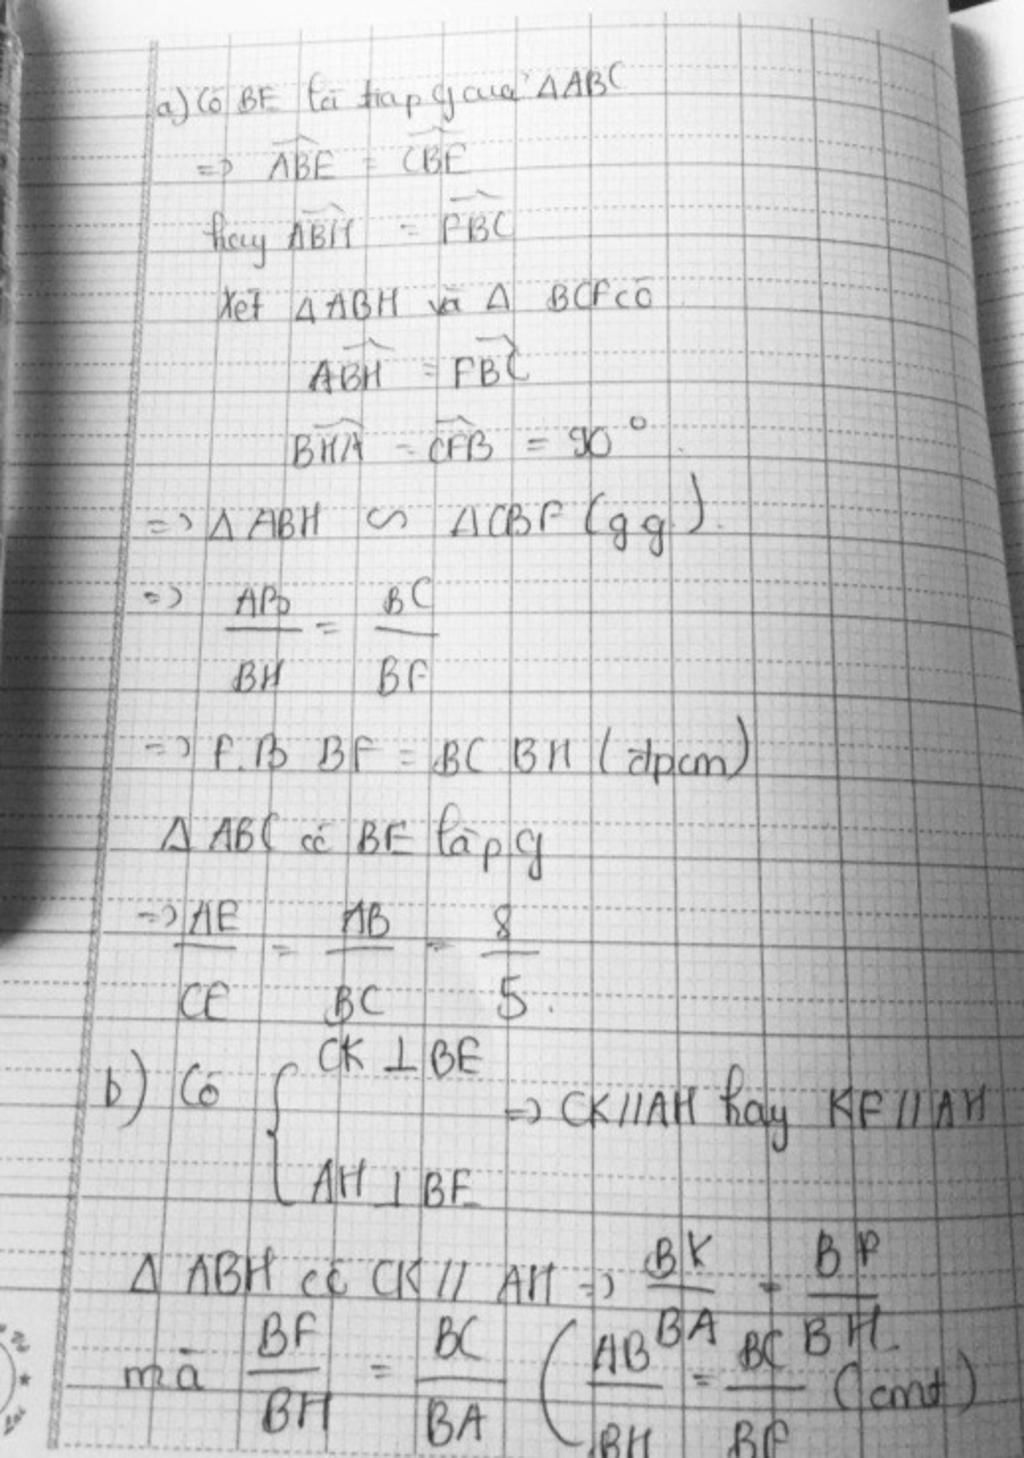 a) Có BE là tia pg của ΔABC
=> ABE = CBE
hay ABH = FBC
Xét ΔABH và Δ BCF có
ABH = FBC
BHA = CFB = 90°
=> ΔABH ∽ ΔCBF (gg).
=> AB/BH = BC/BF
=> F.B BF = BC BH (đpcm)
Δ ABC có BE là pg
=> AE/CE = AB/BC = 8/5.
b) Có { CK ⊥ BE
=> CK // AH hay KF // AH
AH ⊥ BE
Δ ABH có CK // AH => BK/BA = BF/BH
mà BF/BH = BC/BA ( AB/BH = BC/BF (cmt)